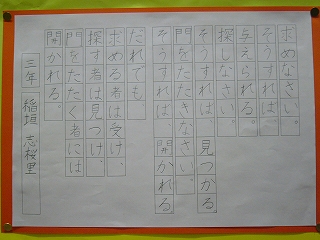 求めなさい。
そうすれば、
与えられる。
探しなさい。
そうすれば、見つかる
門をたたきなさい。
そうすれば、開かれる
だれでも、
求める者は受け、
探す者は見つけ、
門をたたく者には
開かれる。
三年 稲垣 志桜里